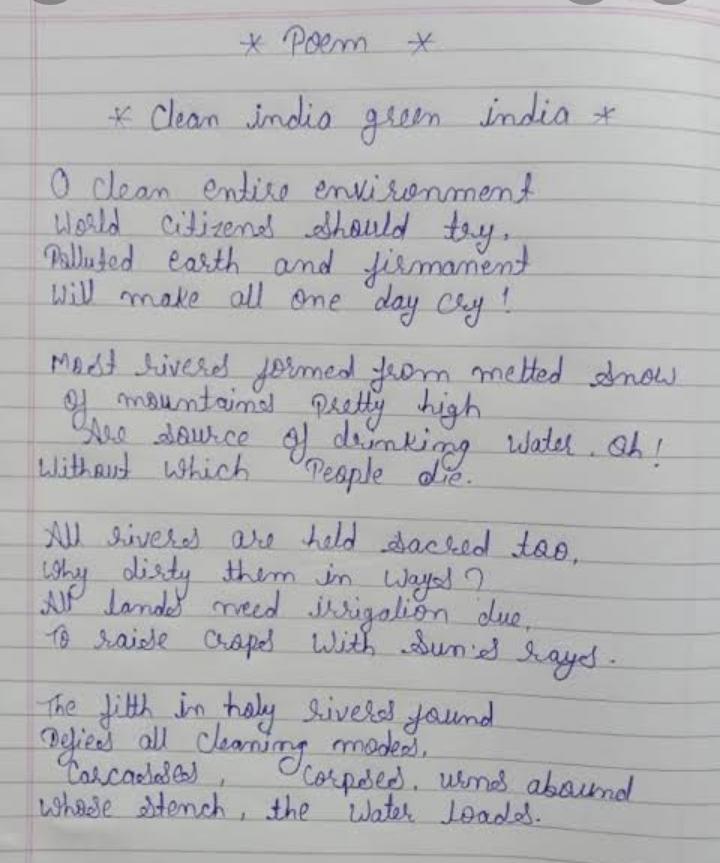 * Poem *
* Clean india green india *
O clean entire environment
World citizens should try,
Polluted earth and firmament
Will make all one day cry!
Most rivers formed from melted snow
Of mountains pretty high
Are source of drinking water. Oh!
Without which People die.
All rivers are held sacred too,
Why dirty them in ways?
All lands need irrigation due,
To raise crops with Sun's rays.
The filth in holy rivers found
Defies all cleaning modes,
Carcasses, Corpses, urns abound
Whose stench, the water loads.